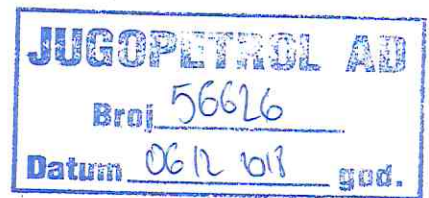 JUGOPETROL AD
Broj 56626
Datum 06 12 2018 god.